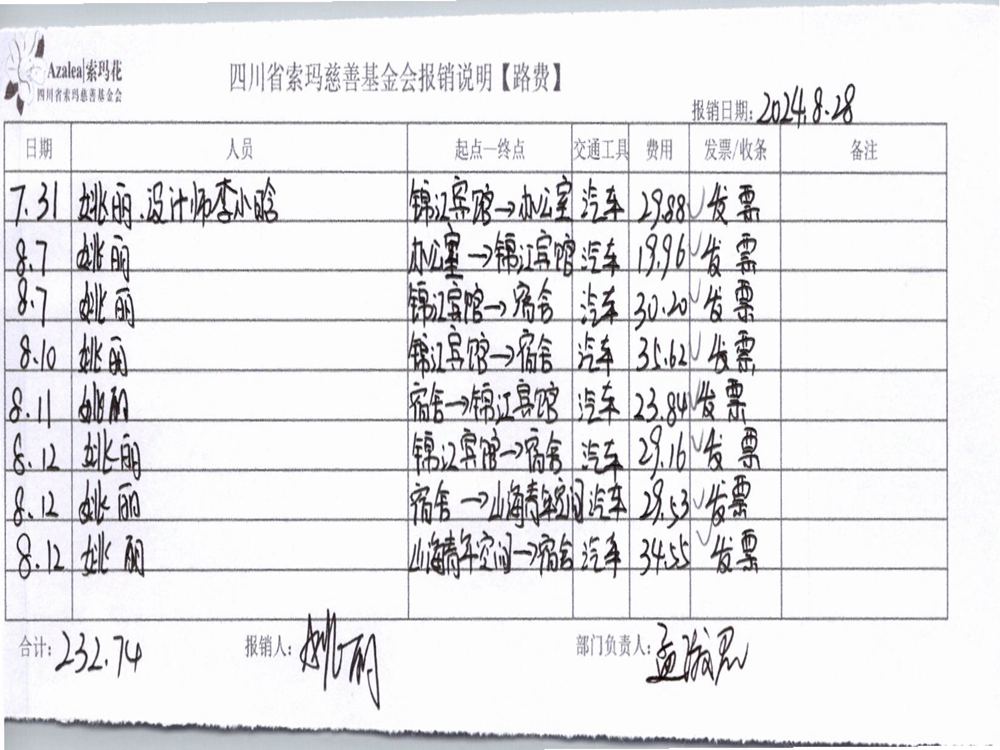 Azalea|索玛花
四川省索玛慈善基金会
四川省索玛慈善基金会报销说明【路费】
报销日期: 2024.8.28
日期 人员 起点—终点 交通工具 费用 发票/收条 备注
7.31 姚丽、设计师李小晗 锦江宾馆→办公室 汽车 29.88 发票
8.7 姚丽 办公室→锦江宾馆 汽车 19.96 发票
8.7 姚丽 锦江宾馆→宿舍 汽车 30.20 发票
8.10 姚丽 锦江宾馆→宿舍 汽车 35.62 发票
8.11 姚丽 宿舍→锦江宾馆 汽车 23.84 发票
8.12 姚丽 锦江宾馆→宿舍 汽车 29.16 发票
8.12 姚丽 宿舍→山海青年空间 汽车 29.53 发票
8.12 姚丽 山海青年空间→宿舍 汽车 34.55 发票
合计: 232.74 报销人: 姚丽 部门负责人: 孟